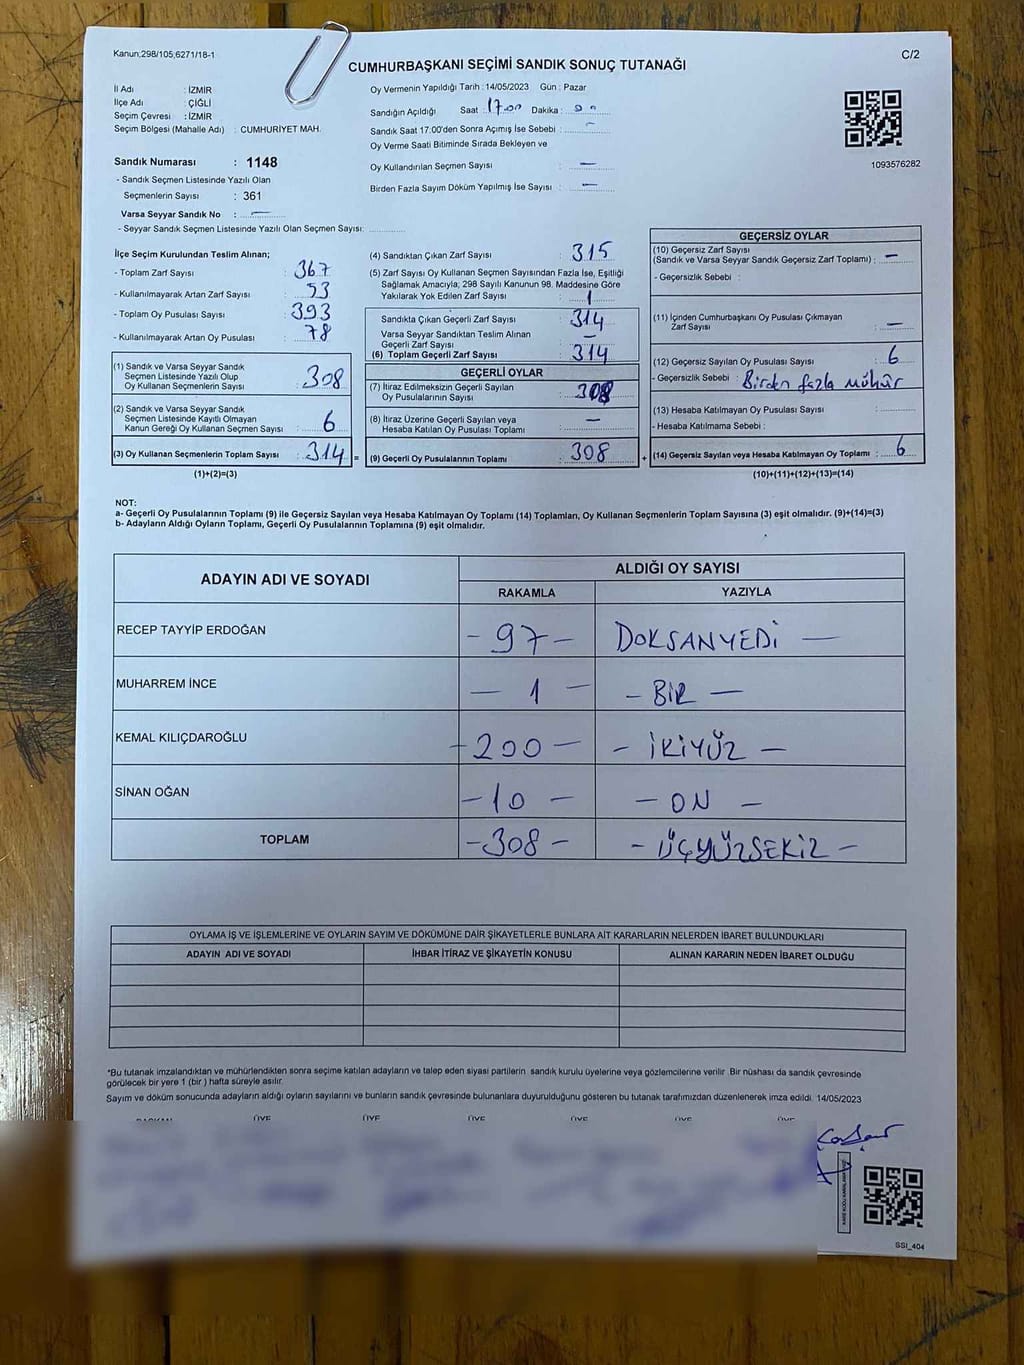 Kanun;298/105,6271/18-1
C/2
CUMHURBAŞKANI SEÇİMİ SANDIK SONUÇ TUTANAĞI
İl Adı : İZMİR
İlçe Adı : ÇİĞLİ
Seçim Çevresi : İZMİR
Seçim Bölgesi (Mahalle Adı) : CUMHURİYET MAH.
Sandık Numarası : 1148
- Sandık Seçmen Listesinde Yazılı Olan
Seçmenlerin Sayısı : 361
Varsa Seyyar Sandık No : —
- Seyyar Sandık Seçmen Listesinde Yazılı Olan Seçmen Sayısı:
Oy Vermenin Yapıldığı Tarih : 14/05/2023 Gün : Pazar
Sandığın Açıldığı Saat 17.00 Dakika : 00
Sandık Saat 17:00'den Sonra Açımış İse Sebebi : —
Oy Verme Saati Bitiminde Sırada Bekleyen ve
Oy Kullandırılan Seçmen Sayısı : —
Birden Fazla Sayım Döküm Yapılmış İse Sayısı : —
1093576282
İlçe Seçim Kurulundan Teslim Alınan;
- Toplam Zarf Sayısı : 367
- Kullanılmayarak Artan Zarf Sayısı : 53
- Toplam Oy Pusulası Sayısı : 393
- Kullanılmayarak Artan Oy Pusulası : 78
(1) Sandık ve Varsa Seyyar Sandık
Seçmen Listesinde Yazılı Olup
Oy Kullanan Seçmenlerin Sayısı : 308
(2) Sandık ve Varsa Seyyar Sandık
Seçmen Listesinde Kayıtlı Olmayan
Kanun Gereği Oy Kullanan Seçmen Sayısı : 6
(3) Oy Kullanan Seçmenlerin Toplam Sayısı : 314 =
(1)+(2)=(3)
(4) Sandıktan Çıkan Zarf Sayısı : 315
(5) Zarf Sayısı Oy Kullanan Seçmen Sayısından Fazla İse, Eşitliği
Sağlamak Amacıyla; 298 Sayılı Kanunun 98. Maddesine Göre
Yakılarak Yok Edilen Zarf Sayısı : 1
Sandıkta Çıkan Geçerli Zarf Sayısı : 314
Varsa Seyyar Sandıktan Teslim Alınan
Geçerli Zarf Sayısı : —
(6) Toplam Geçerli Zarf Sayısı : 314
GEÇERLİ OYLAR
(7) İtiraz Edilmeksizin Geçerli Sayılan
Oy Pusulalarının Sayısı : 308
(8) İtiraz Üzerine Geçerli Sayılan veya
Hesaba Katılan Oy Pusulası Toplamı : —
(9) Geçerli Oy Pusulalarının Toplamı : 308 +
GEÇERSİZ OYLAR
(10) Geçersiz Zarf Sayısı
(Sandık ve Varsa Seyyar Sandık Geçersiz Zarf Toplamı) : —
- Geçersizlik Sebebi :
(11) İçinden Cumhurbaşkanı Oy Pusulası Çıkmayan
Zarf Sayısı : —
(12) Geçersiz Sayılan Oy Pusulası Sayısı : 6
- Geçersizlik Sebebi : Birden fazla mühür
(13) Hesaba Katılmayan Oy Pusulası Sayısı :
- Hesaba Katılmama Sebebi :
(14) Geçersiz Sayılan veya Hesaba Katılmayan Oy Toplamı : 6
(10)+(11)+(12)+(13)=(14)
NOT:
a- Geçerli Oy Pusulalarının Toplamı (9) ile Geçersiz Sayılan veya Hesaba Katılmayan Oy Toplamı (14) Toplamları, Oy Kullanan Seçmenlerin Toplam Sayısına (3) eşit olmalıdır. (9)+(14)=(3)
b- Adayların Aldığı Oyların Toplamı, Geçerli Oy Pusulalarının Toplamına (9) eşit olmalıdır.
ADAYIN ADI VE SOYADI
ALDIĞI OY SAYISI
RAKAMLA YAZIYLA
RECEP TAYYİP ERDOĞAN - 97 - DOKSANYEDİ —
MUHARREM İNCE — 1 — - BİR —
KEMAL KILIÇDAROĞLU - 200 — - İKİYÜZ —
SİNAN OĞAN - 10 — - ON —
TOPLAM - 308 - - ÜÇYÜZSEKİZ -
OYLAMA İŞ VE İŞLEMLERİNE VE OYLARIN SAYIM VE DÖKÜMÜNE DAİR ŞİKAYETLERLE BUNLARA AİT KARARLARIN NELERDEN İBARET BULUNDUKLARI
ADAYIN ADI VE SOYADI İHBAR İTİRAZ VE ŞİKAYETİN KONUSU ALINAN KARARIN NEDEN İBARET OLDUĞU
*Bu tutanak imzalandıktan ve mühürlendikten sonra seçime katılan adayların ve talep eden siyasi partilerin sandık kurulu üyelerine veya gözlemcilerine verilir .Bir nüshası da sandık çevresinde
görülecek bir yere 1 (bir ) hafta süreyle asılır.
Sayım ve döküm sonucunda adayların aldığı oyların sayılarını ve bunların sandık çevresinde bulunanlara duyurulduğunu gösteren bu tutanak tarafımızdan düzenlenerek imza edildi. 14/05/2023
BAŞKAN ÜYE ÜYE ÜYE ÜYE ÜYE ÜYE
SSI_404